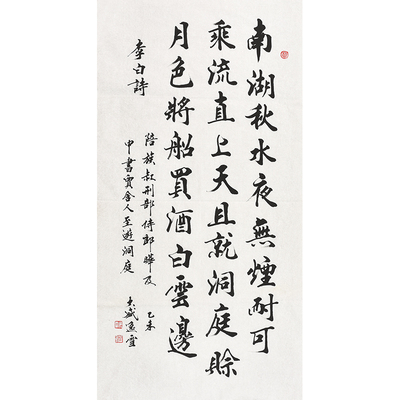 南湖秋水夜無煙耐可
乘流直上天且就洞庭賒
月色將船買酒白雲邊
李白詩
陪族叔刑部侍郎曄及
中書賈舍人至遊洞庭
乙未